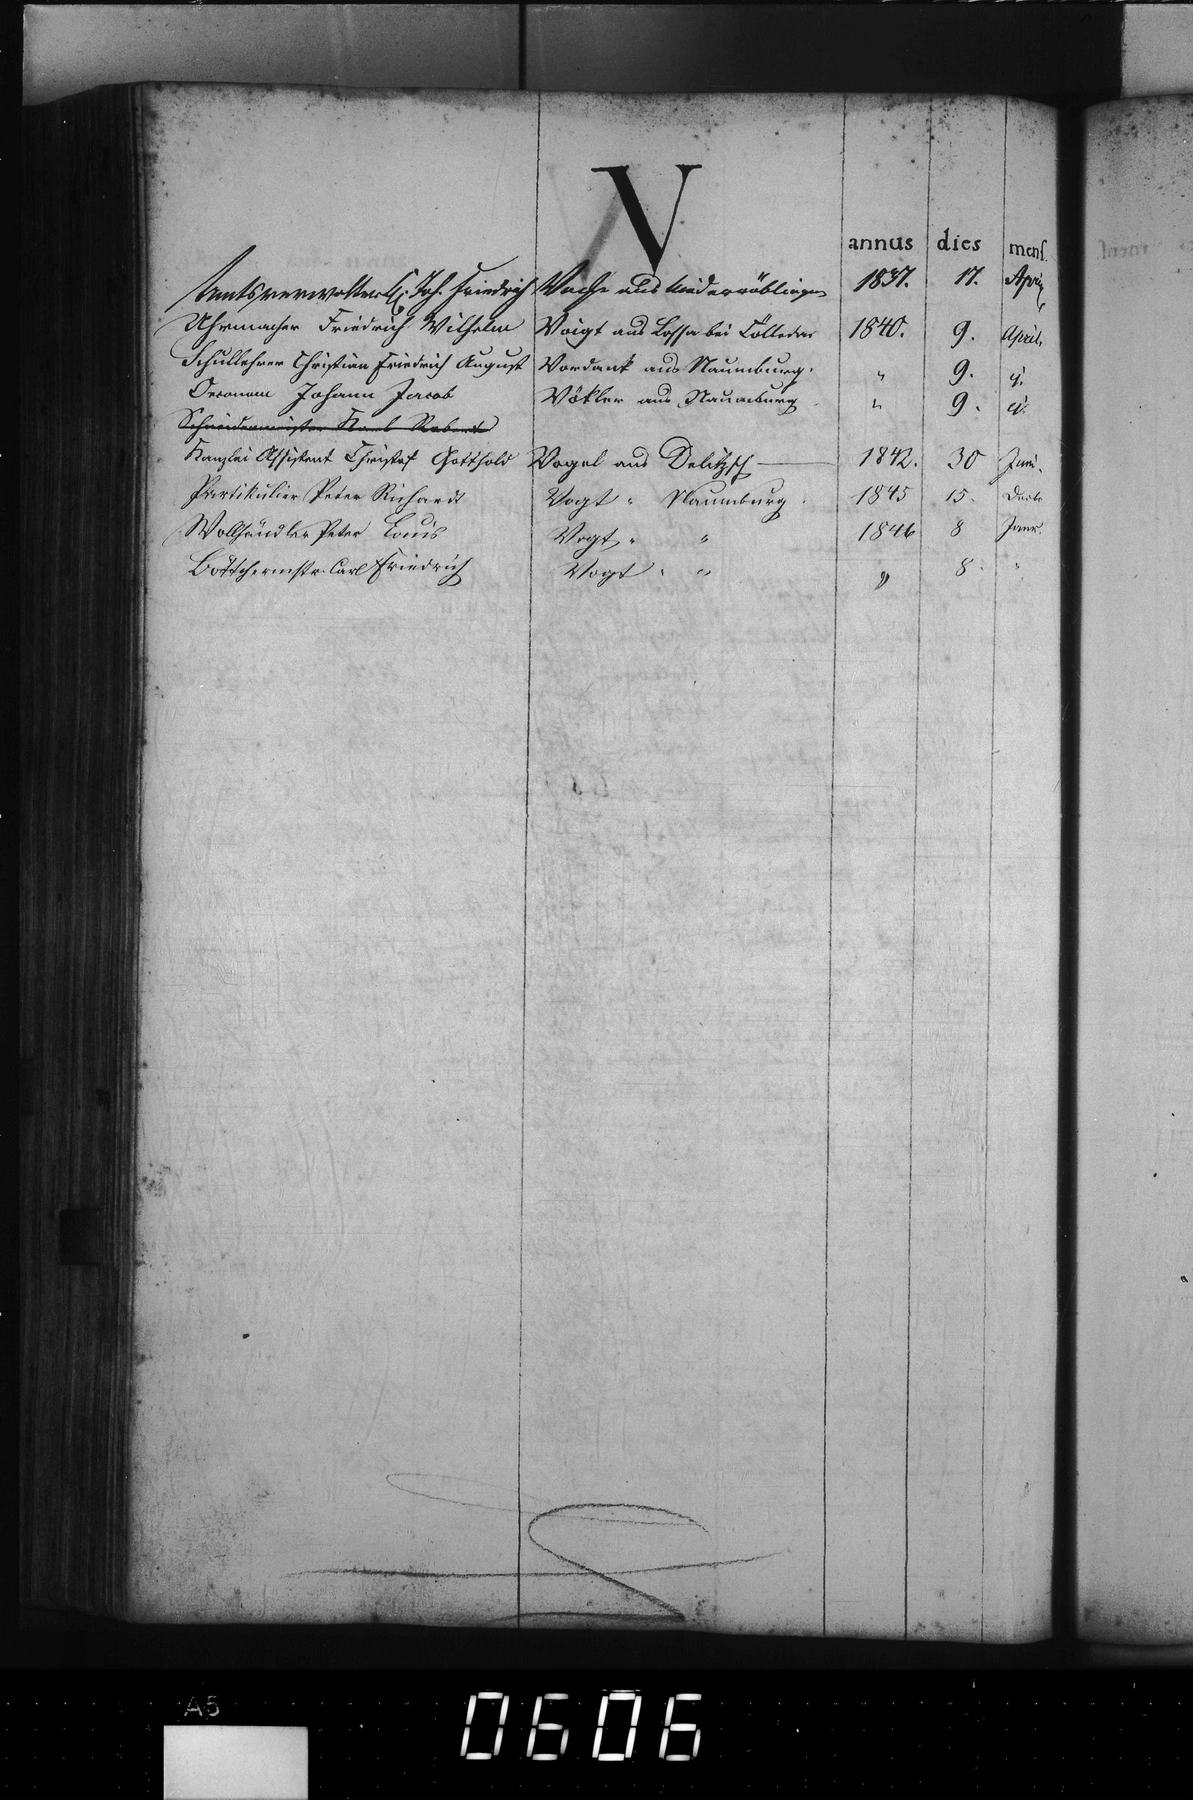 V
annus dies mens.
Amtsverwalter E. Joh. Friedrich Vache aus Niederröblingen 1837. 17. April
Uhrmacher Friedrich Wilhelm Voigt aus Lossa bei Cölleda 1840. 9. April.
Schullehrer Christian Friedrich August Vordank aus Naumburg. " 9. ej.
Oeconom Johann Jacob Völler aus Naumburg " 9. ej.
Schneidermeister Karl Robert
Kanzlei Assistent Christof Gotthold Vogel aus Delitzsch — 1842. 30 Juni.
Partikulier Peter Richardt Vogt " Naumburg. 1845 15. Decbr
Wollhändler Peter Louis Vogt " " 1846 8 Janr.
Böttchermstr. Carl Friedrich Vogt " " " 8. "
A5
0606